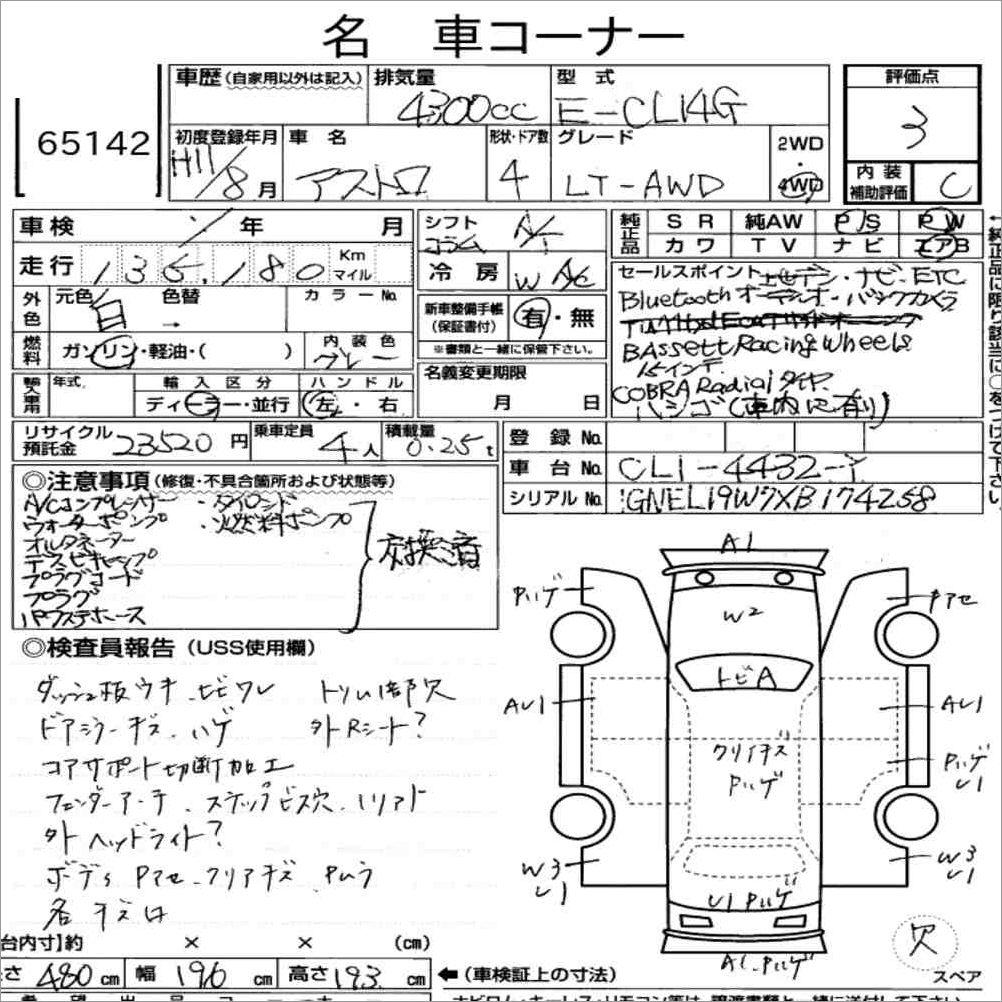 名 車コーナー
65142
車歴(自家用以外は記入) 排気量 4300cc 型式 E-CL14G
評価点 3
初度登録年月 H11/8月 車名 アストロ 形状・ドア数 4 グレード LT-AWD 2WD・4WD
内装補助評価 C
車検 年 月
シフト コラム A/T
純正品 SR 純AW P/S PW
カワ TV ナビ エアB
走行 135,180 Km マイル
冷房 WAC
外色 元色 白 → 色替 カラーNo.
新車整備手帳(保証書付) 有・無
※書類と一緒に保管下さい。
燃料 ガソリン・軽油・( ) 内装色 グレー
セールスポイント ・ナビ・ETC
Bluetoothオーディオ・バックカメラ
BAssett Racing wheels
15インチ
COBRA Radialタイヤ
ハシゴ(車内に有り)
輸入車用 年式 輸入区分 ディーラー・並行 ハンドル 左・右
名義変更期限 月 日
リサイクル預託金 23520円 乗車定員 4人 積載量 0.25t
登録No.
車台No. CL1-4432-
シリアルNo. 1GNEL19W7XB174258
◎注意事項(修復・不具合箇所および状態等)
A/Cコンプレッサー ・タイロンド
ウォーターポンプ ・燃料ポンプ
オルタネーター
デスビキャップ
プラグコード
プラグ
パワステホース
交換済
◎検査員報告(USS使用欄)
ダッシュ板ウキ、ビビワレ トリム1部欠
ドアミラーキズ、ハゲ 外Rシート?
コアサポート切断加工
フェンダーアーチ、ステップビス穴、リアド
外ヘッドライト?
ボディPアセ、クリアキズ、Pムラ
各キズ凹
A1
Pハゲ
Pアセ
W2
トビA
AU1
AU1
クリアキズ
Pハゲ
Pハゲ
U1
W3
U1
W3
U1
U1 Pハゲ
A1、Pハゲ
欠
スペア
台内寸】約 × × (cm)
さ 480cm 幅 196cm 高さ 193cm
←(車検証上の寸法)
←純正品に限り該当に○をつけて下さい。